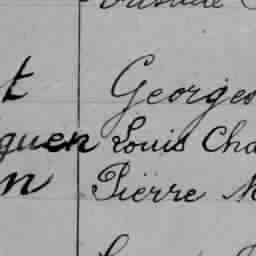 t Georges
guen Louis Cha
n Pierre M